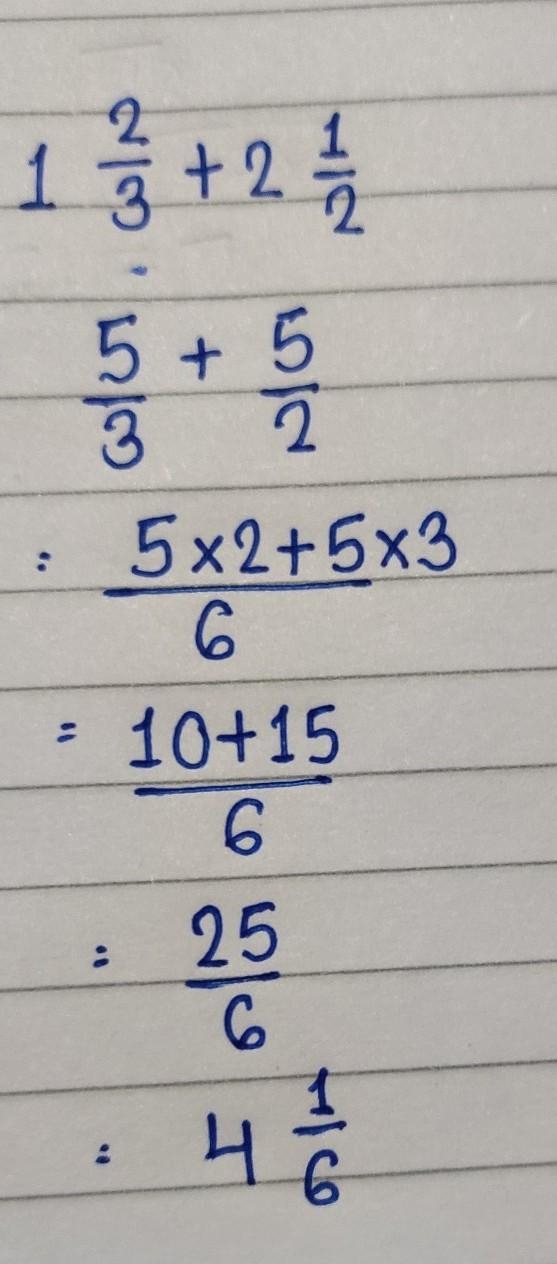 1 2/3 + 2 1/2
5/3 + 5/2
= 5×2+5×3/6
= 10+15/6
= 25/6
= 4 1/6